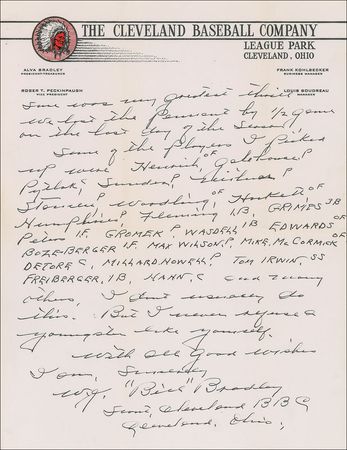 THE CLEVELAND BASEBALL COMPANY
LEAGUE PARK
CLEVELAND, OHIO
ALVA BRADLEY
PRESIDENT-TREASURER
FRANK KOHLBECKER
BUSINESS MANAGER
ROGER T. PECKINPAUGH
VICE PRESIDENT
LOUIS BOUDREAU
MANAGER
was my greatest thrill
We lost the Pennant by 1/2 game
on the last day of the Season.
Some of the Players I Picked
up were Heinrich, OF Galehouse, P
Pytlak, C Sundra, P
OF Woodling, OF Hockett, OF
Humphries, P Fleming 1B, GRIMES 3B
Peters IF, GROMEK P, WASDELL, 1B EDWARDS OF
BOZE-BERGER IF. MAX WILSON, P, MIKE, McCORMICK OF
DETORE C, MILLARD, HOWELL, P TOM IRWIN, SS
FREIBERGER, 1B, HANN, C and many
others, I dont usually do
this. But I never refuse a
youngster like yourself.
With all Good wishes
I am, Sincerely
W.J. "Bill" Bradley
Scout, Cleveland B B Co
Cleveland, Ohio.